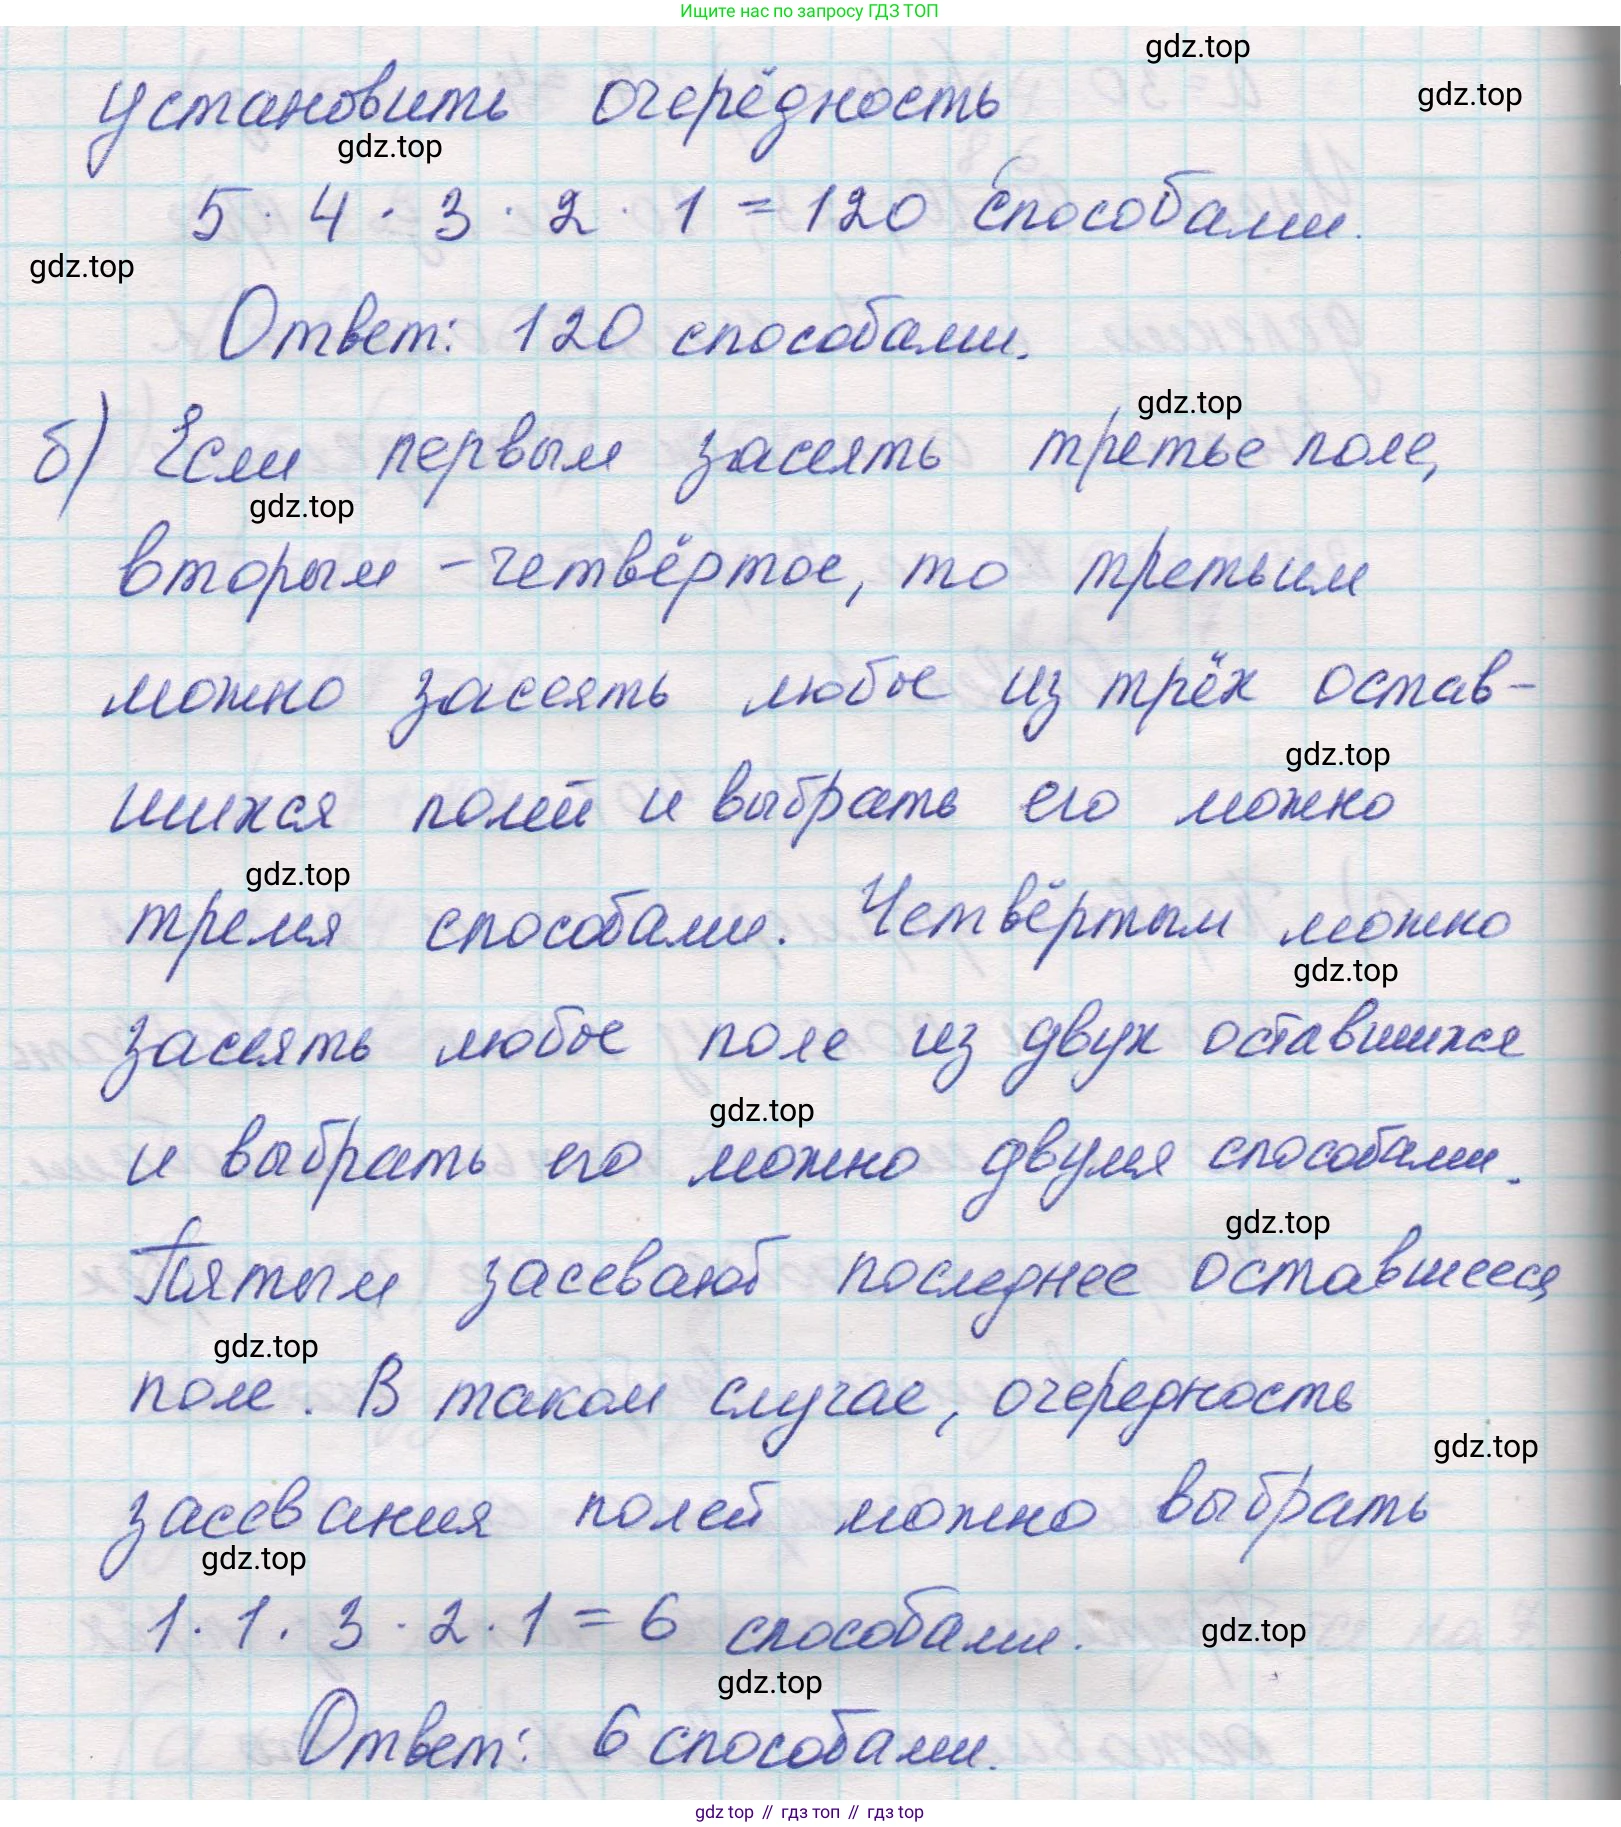 Ищите нас по запросу ГДЗ ТОП
gdz.top
gdz.top
установить очерёдность
gdz.top
5 · 4 · 3 · 2 · 1 = 120 способами.
gdz.top
Ответ: 120 способами.
gdz.top
б) Если первым засеять третье поле,
gdz.top
вторым - четвёртое, то третьим
можно засеять любое из трёх остав-
gdz.top
шихся полей и выбрать его можно
gdz.top
тремя способами. Четвёртым можно
gdz.top
засеять любое поле из двух оставшихся
gdz.top
и выбрать его можно двумя способами.
gdz.top
Пятым засевают последнее оставшееся
gdz.top
поле. В таком случае, очередность
gdz.top
засевания полей можно выбрать
gdz.top
1 · 1 · 3 · 2 · 1 = 6 способами.
gdz.top
gdz.top
Ответ: 6 способами.
gdz top // гдз топ // гдз top